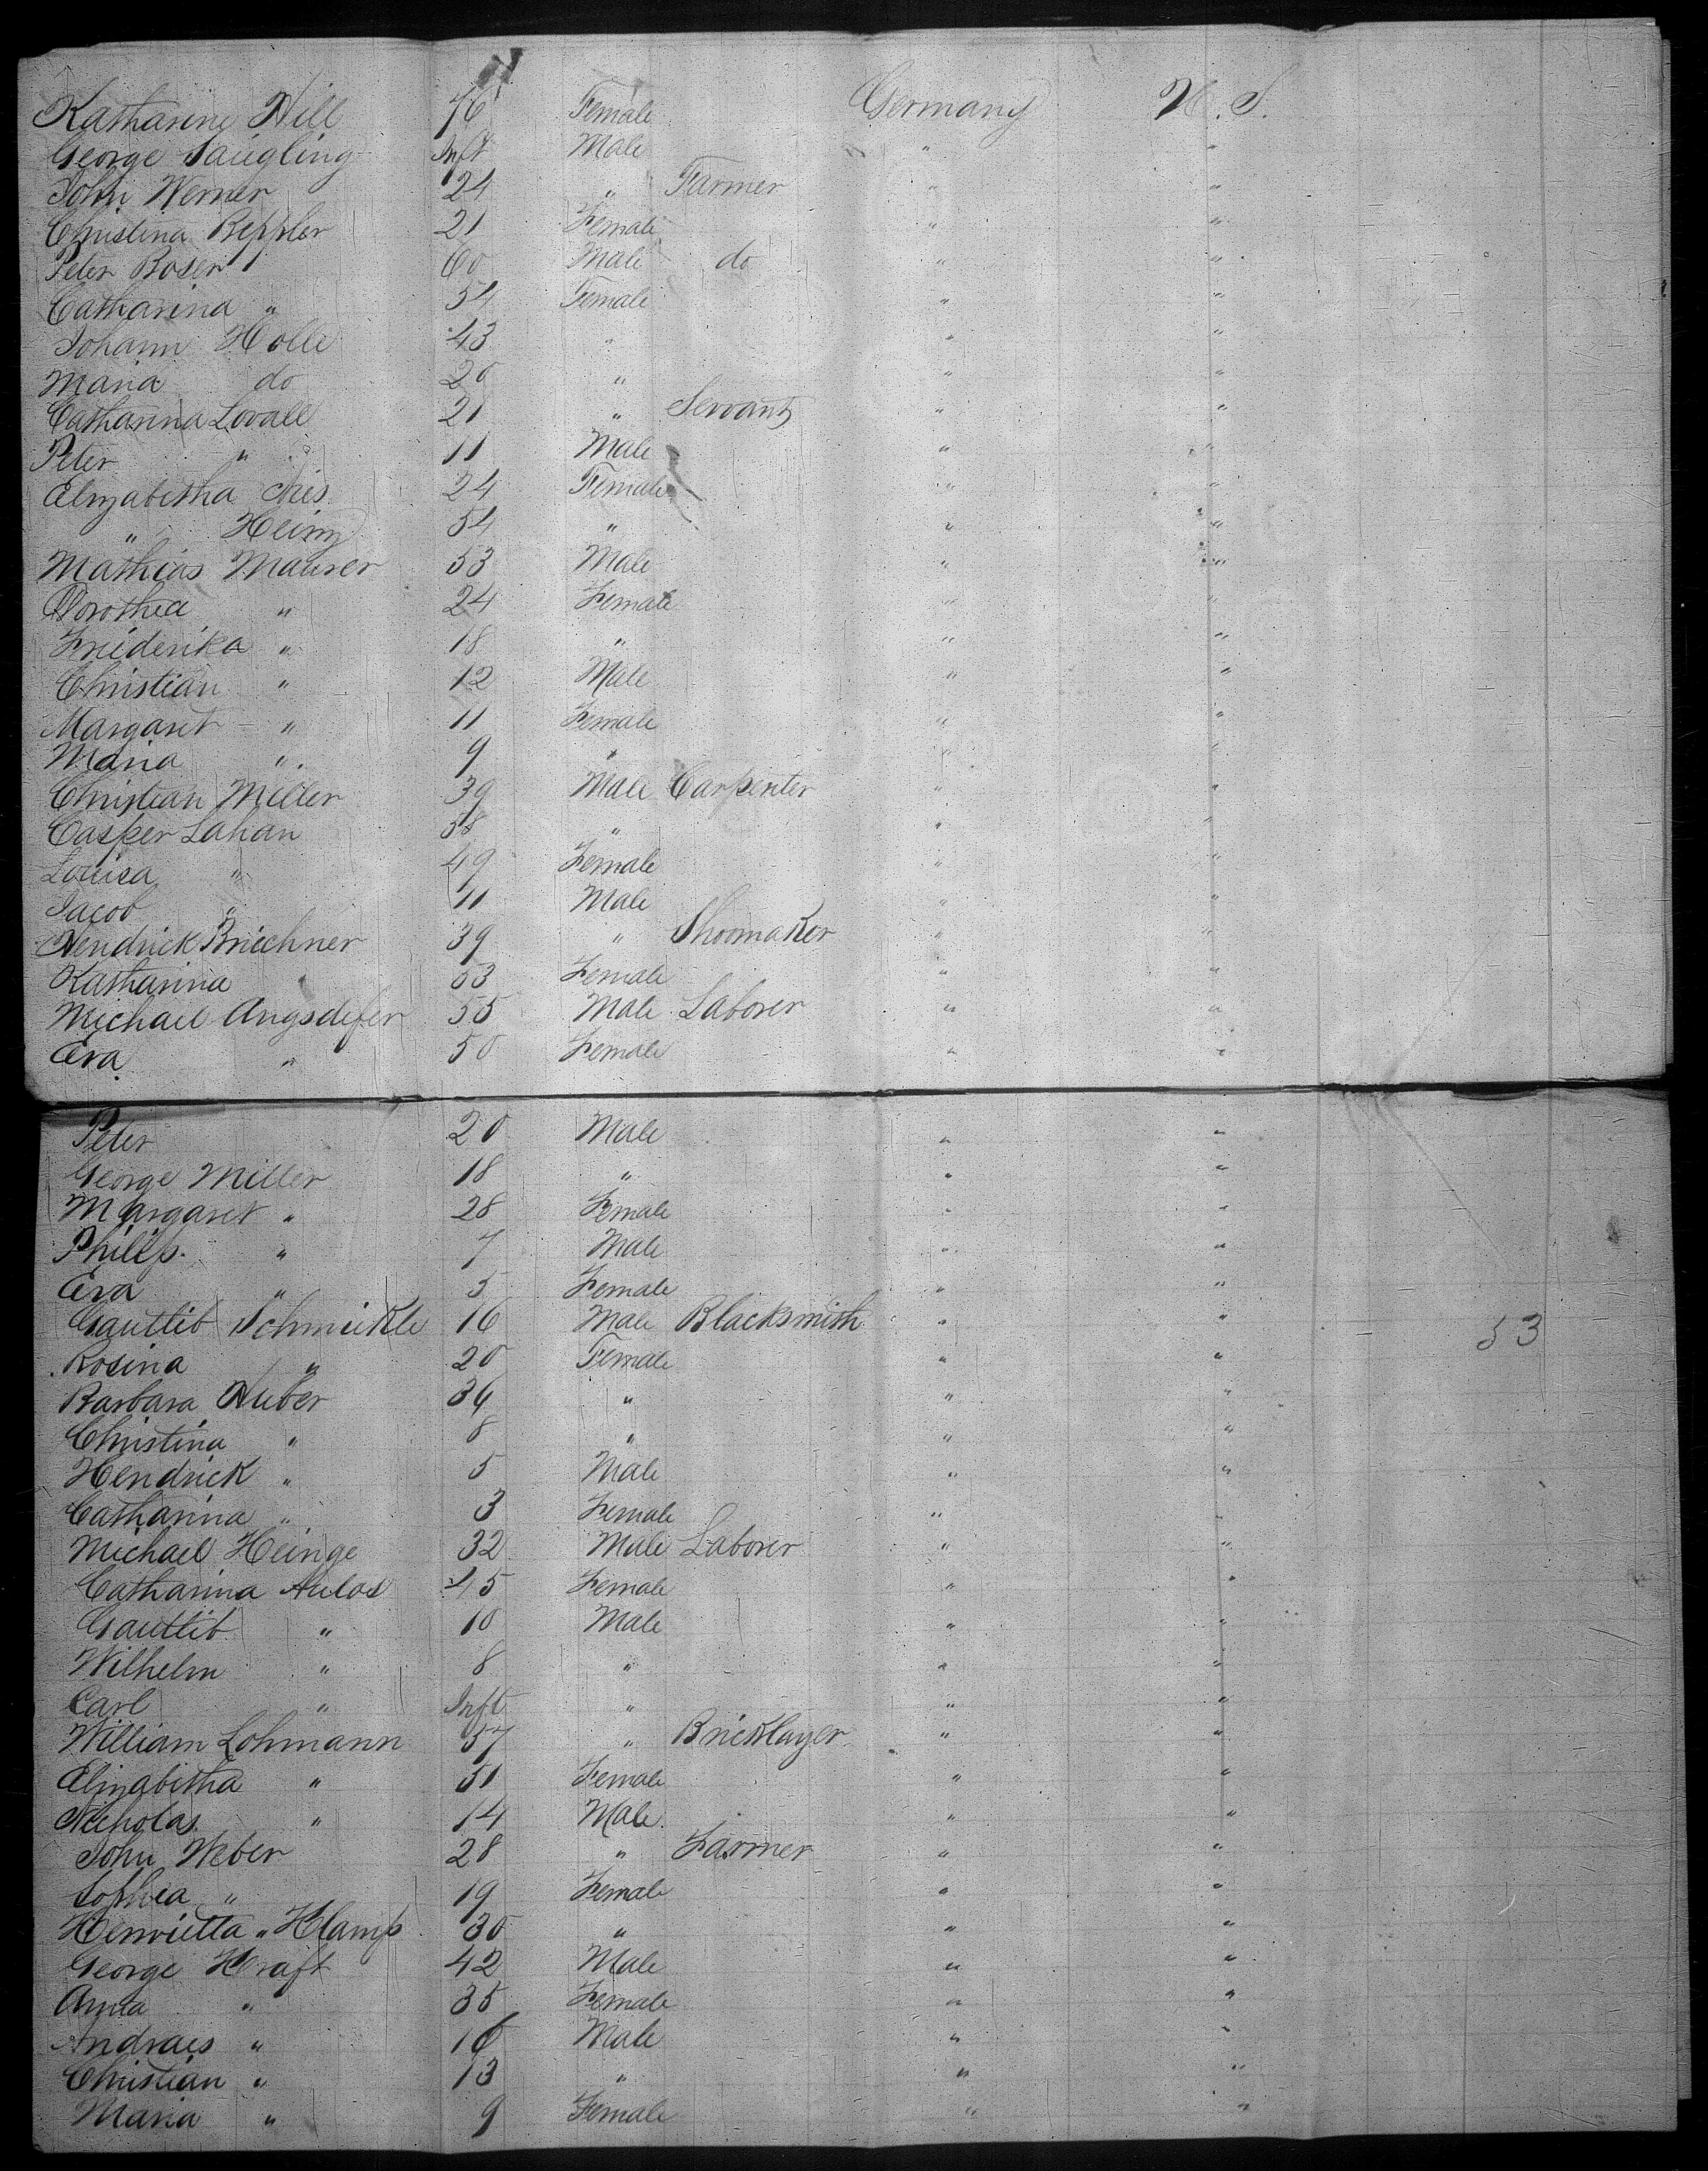 Katharine Hill 76 Female Germany U. S.
George Saugling Inft Male " "
John Werner 24 " Farmer " "
Christina Reppler 21 Female " "
Peter Boser 60 Male do " "
Catharina " 54 Female " "
Johann Holle 43 " " "
Maria do 20 " " "
Catharina Lovall 21 " Servant " "
Peter " 11 Male " "
Elizabetha Nies 24 Female " "
" Heinz 54 " " "
Mathias Maurer 53 Male " "
Dorothea " 24 Female " "
Friederika " 18 " " "
Christian " 12 Male " "
Margaret " 11 Female " "
Maria " 9 " " "
Christian Miller 39 Male Carpenter " "
Casper Lahan 58 " " "
Louisa " 49 Female " "
Jacob " 11 Male " "
Hendrick Briechner 39 " Shoomaker " "
Katharina " 53 Female " "
Michael Angsdefer 55 Male Laborer " "
Eva " 50 Female " "
Peter 20 Male " "
George Miller 18 " " "
Margaret " 28 Female " "
Philip " 7 Male " "
Eva " 5 Female " "
Gauttib Schmickle 16 Male Blacksmith " " 53
Rosina " 20 Female " "
Barbara Huber 34 " " "
Christina " 8 " " "
Hendrick " 5 Male " "
Catharina " 3 Female " "
Michael Heinge 32 Male Laborer " "
Catharina Aulos 45 Female " "
Gauttib " 10 Male " "
Wilhelm " 8 " " "
Carl " Inft " " "
William Lohmann 57 " Bricklayer " "
Elizabetha " 51 Female " "
Nicholas " 14 Male " "
John Weber 28 " Farmer " "
Sophia " 19 Female " "
Henrietta " Klamp 30 " " "
George Kraft 42 Male " "
Anna " 35 Female " "
Andraes " 16 Male " "
Christian " 13 " " "
Maria " 9 Female " "